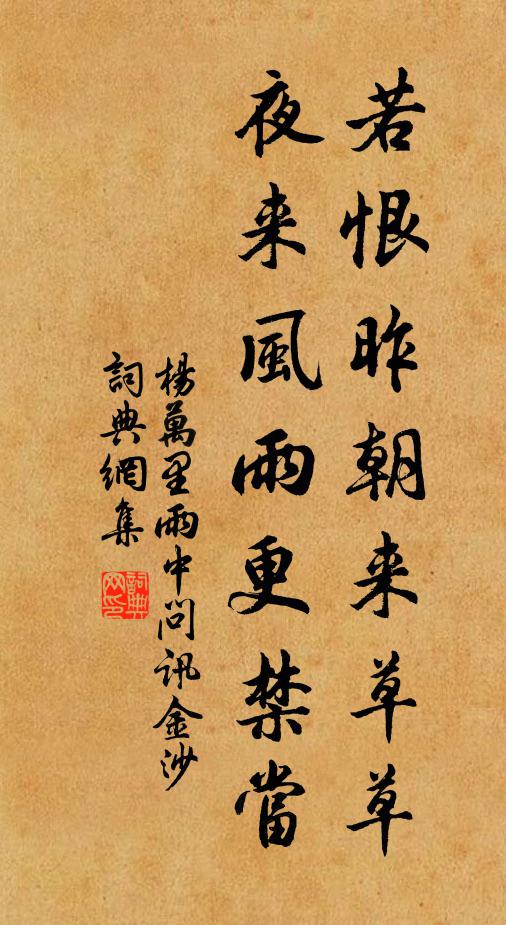 若恨昨朝来草草
夜来風雨更禁當
楊萬里雨中問訊金沙
詞典網集
詞典
网印